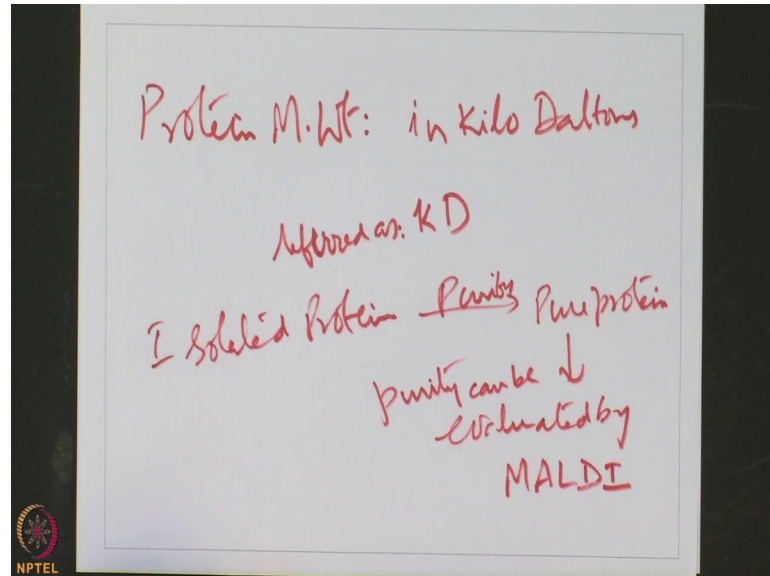 Protein M.Wt: in Kilo Daltons
referred as: KD
Isolated Protein Purity Pure protein
purity can be
evaluated by
MALDI
NPTEL